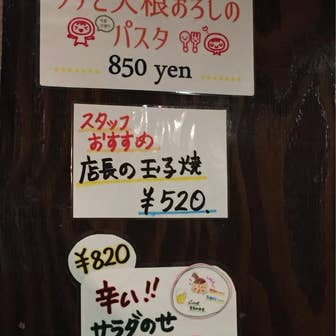 大根おろしの
パスタ
850 yen
スタッフ
おすすめ
店長の玉子焼
¥520.
¥820
辛い!!
サラダのせ